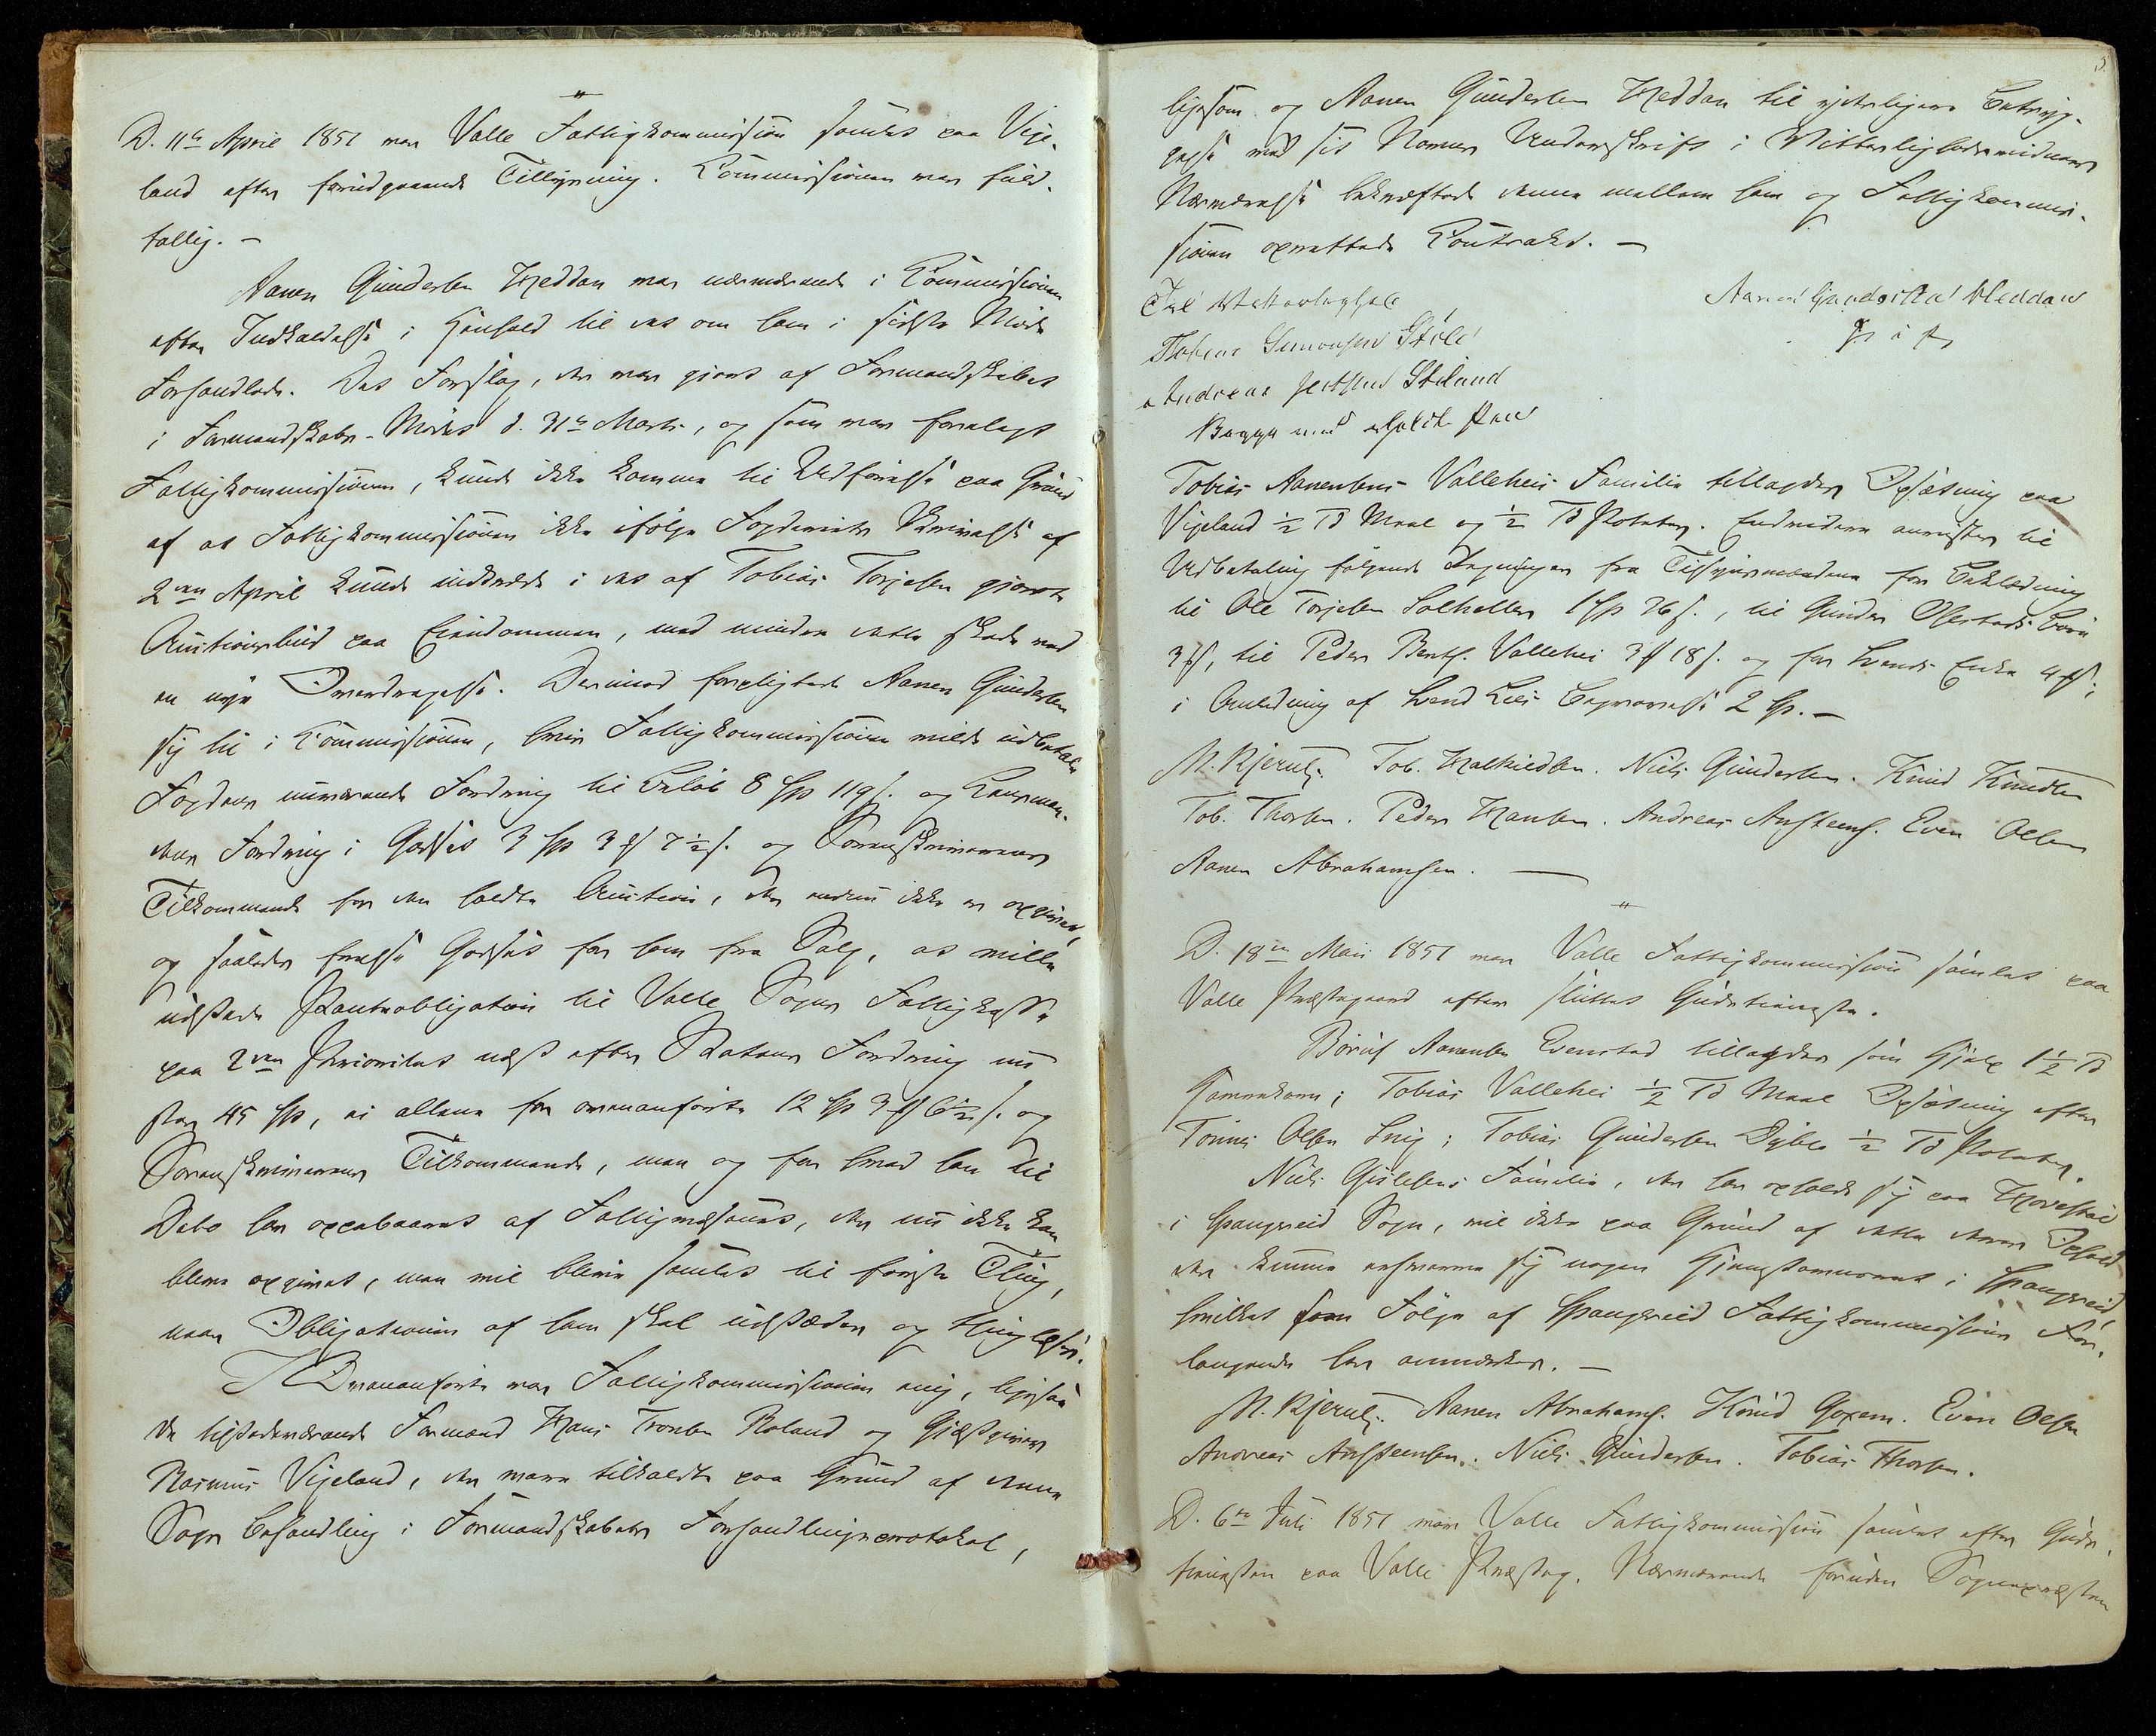 D. 11te April 1851 var Valle Fattigkommission samlet paa Vige-
land efter forudgaaende Tillysning. Commissionen var fuld-
tallig. –
Aanen Gundersen Heddan var nærværende i Commissionen
efter Indkaldelse i Henhold til det om ham i sidste Møde
Forhandlede. Det Forslag, der var gjort af Formandskabet
i Formandskabs-Møde d. 31te Marts, og som var forelagt
Fattigkommissionen, kunde ikke komme til Udførelse paa Grund
af at Fattigkommissionen ikke ifølge Fogderiets Skrivelse af
2den April kunde indtræde i det af Tobias Torjesen gjorte
Auctionsbud paa Eiendommen, med mindre dette skede ved
en nye Overdragelse. Derimod forpligtede Aanen Gundersen
sig til i Commissionen, hvis Fattigkommissionen vilde udbetale
Fogdens nuværende Fordring til Beløb 8 Spd 119 s. og Laugman-
dens Fordring i Godset 3 Spd 3 ort 7½ s. og Sorenskriverens
Tilkommende for den holdte Auction, der endnu ikke er opgivet,
og saaledes frelse Godset for ham fra Salg, at ville
udstæde Panteobligation til Valle Sogns Fattigkasse
paa 2den Prioritet næst efter Statens Fordring nu
stor 45 Spd, ei allene for ovenanførte 12 Spd 3 ort 6½ s. og
Sorenskriverens Tilkommende, men og for hvad han til
Dato har oppebaaret af Fattigvæsenet, der nu ikke kan
blive opgivet, men vil blive samlet til første Thing,
naar Obligationen af ham skal udstædes og thinglyses.
I Ovenanførte var Fattigkommissionen enig, ligesaa
de tilstedeværende Formænd Hans Tronsen Roland og Gjæstgiver
Rasmus Vigeland, der vare tilkaldte paa Grund af denne
Sags Behandling i Formandskabets Forhandlingsprotokol,
ligesom og Aanen Gundersen Heddan til yderligere Betryg-
gelse med sit Navns Underskrift i Vitterlighedsvidners
Nærværelse bekræftede denne mellem ham og Fattigkommis-
sionen oprettede Contrakt. –
Til Vitterlighed
Aanen Gundersen Heddan
Tobias Simonsen Støle
Andreas Stuland
Begge med holdt Pen
Tobias Aanensens Valleheis Familie tillagdes Opsætning paa
Vigeland ½ Td Meel og ½ Td Poteter. Endvidere anvistes til
Udbetaling følgende Regninger fra Tilsynsmændene for Beklædning
til Ole Torjesen Solhellen 1 Spd 26 s., til Gunder Ofestads Børn
3 ort, til Peder Bents. Vallehei 3 ort 18 s. og for Svends Enke 4 ort;
i Anledning af Svend Lies Begravelse 2 Sp. –
M. Kjerulf. Tob. Halkildsen. Niels Gundersen. Knud Knudsen
Tob. Thorsen. Peder Hansen. Andreas Anstens. Even Olsen
Aanen Abrahamsen. –
D. 18de Mai 1851 var Valle Fattigkommission samlet paa
Valle Præstegaard efter sluttet Gudstieneste.
Børuf Aanensen Evenstad tillagdes som Hjelp 1½ Td
Havrekorn; Tobias Vallehei ½ Td Meel Opsætning efter
Tønnes Olsen Snig; Tobias Gundersen Dybo ½ Td Poteter.
Niels Gislesens Familie, der har opholdt sig paa Hovestøl
i Spangereid Sogn, vil ikke paa Grund af dette deres Ophold
der kunne erhverve sig nogen Hjemstavnsret i Spangereid
hvilket som Følge af Spangereid Fattigkommissions For-
langende her anmærkes. –
M. Kjerulf. Aanen Abrahams. Knud Goxem. Even Olsen
Andreas Anstensen. Niels Gundersen. Tobias Thorsen.
D. 6te Juli 1851 var Valle Fattigkommission samlet efter Guds-
tienesten paa Valle Præsteg. Nærværende foruden Sognepræsten